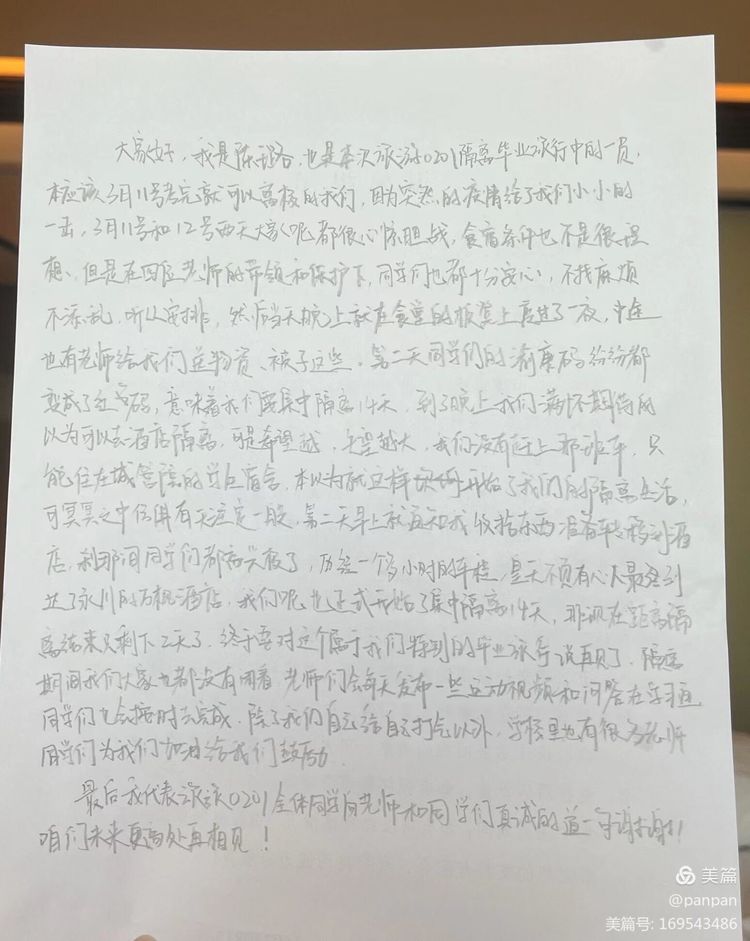 大家好，我是陈璐，也是本次旅游0201隔离毕业旅行中的一员，
本应该3月11号考完就可以离校的我们，因为突然的疫情给了我们小小的
一击，3月11号和12号两天大家呢都很心惊胆战，食宿条件也不是很理
想、但是在四位老师的带领和保护下，同学们也都十分安心，不找麻烦
不添乱，听从安排，然后当天晚上就在食堂的板凳上度过了一夜，中途
也有老师给我们送物资、被子这些。第二天同学们的渝康码纷纷都
变成了红码，意味着我们要集中隔离14天，到了晚上我们满怀期待的
以为可以去酒店隔离，可是希望越，失望越大，我们没有赶上那班车，只
能住在城管院的学生宿舍，本以为就这样开始了我们的隔离生活，
可冥冥之中仿佛有天注定一般，第二天早上就通知我收拾东西准备转移到酒
店，刹那间同学们都高兴极了，历经一个多小时的车程，皇天不负有心人最终到
达了永川的万枫酒店，我们呢也正式开始了集中隔离14天，那现在距离隔
离结束只剩下2天了，终于要对这个属于我们特别的毕业旅行说再见了，隔离
期间我们大家也都没有闲着 老师们会每天发布一些运动视频和问答在学习通
同学们也会按时去完成，除了我们自己给自己打气以外，学校里也有很多老师
同学们为我们加油给我们鼓励.
最后我代表旅游0201全体同学向老师和同学们真诚的道一声谢谢！
咱们未来更高处再相见！
美篇
@panpan
美篇号: 169543486